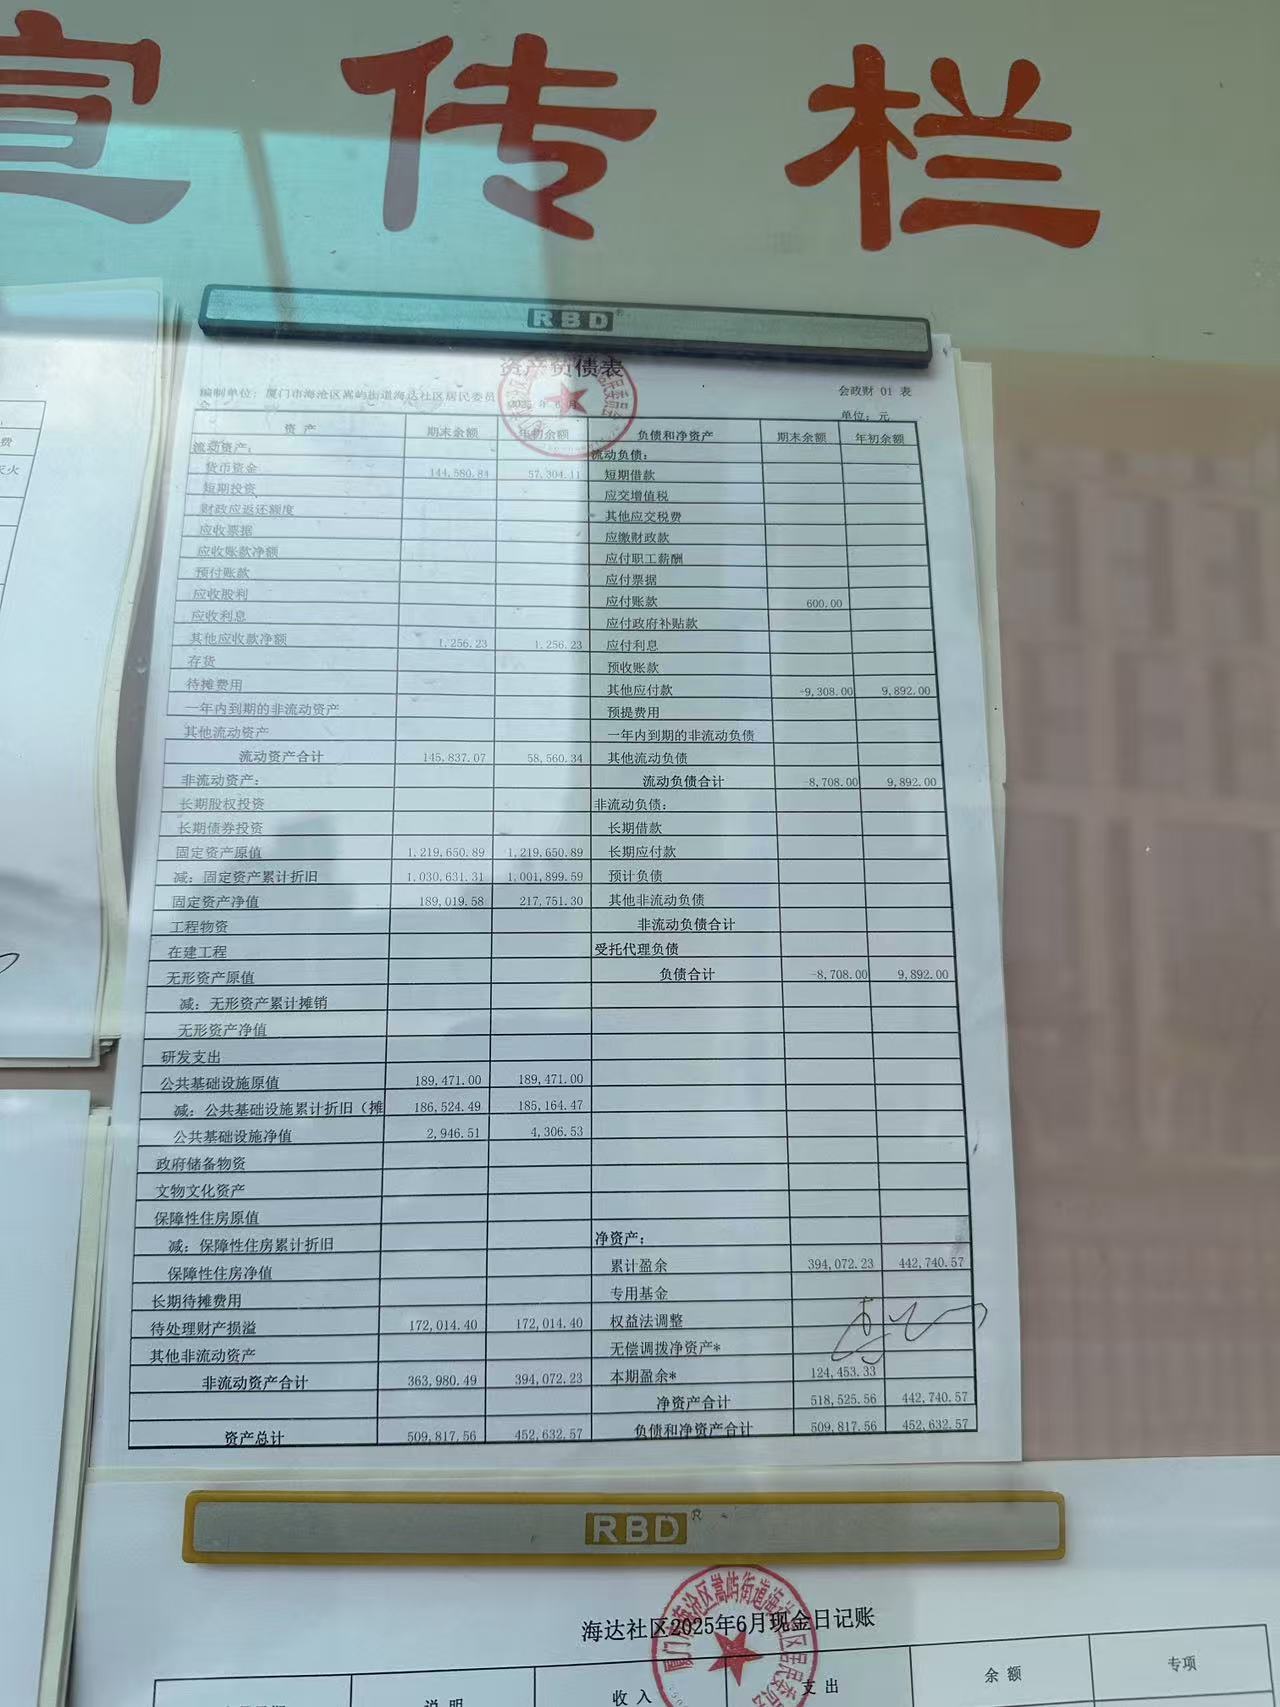 宣传栏
RBD®
资产负债表
会政财 01 表
编制单位：厦门市海沧区嵩屿街道海达社区居民委员会
2025 年 6 月
单位：元
资 产 期末余额 年初余额 负债和净资产 期末余额 年初余额
流动资产： 流动负债：
货币资金 144,580.84 57,304.11 短期借款
短期投资 应交增值税
财政应返还额度 其他应交税费
应收票据 应缴财政款
应收账款净额 应付职工薪酬
预付账款 应付票据
应收股利 应付账款 600.00
应收利息 应付政府补贴款
其他应收款净额 1,256.23 1,256.23 应付利息
存货 预收账款
待摊费用 其他应付款 -9,308.00 9,892.00
一年内到期的非流动资产 预提费用
其他流动资产 一年内到期的非流动负债
流动资产合计 145,837.07 58,560.34 其他流动负债
非流动资产： 流动负债合计 -8,708.00 9,892.00
长期股权投资 非流动负债：
长期债券投资 长期借款
固定资产原值 1,219,650.89 1,219,650.89 长期应付款
减：固定资产累计折旧 1,030,631.31 1,001,899.59 预计负债
固定资产净值 189,019.58 217,751.30 其他非流动负债
工程物资 非流动负债合计
在建工程 受托代理负债
无形资产原值 负债合计 -8,708.00 9,892.00
减：无形资产累计摊销
无形资产净值
研发支出
公共基础设施原值 189,471.00 189,471.00
减：公共基础设施累计折旧（摊 186,524.49 185,164.47
公共基础设施净值 2,946.51 4,306.53
政府储备物资
文物文化资产
保障性住房原值
减：保障性住房累计折旧 净资产：
保障性住房净值 累计盈余 394,072.23 442,740.57
长期待摊费用 专用基金
待处理财产损溢 172,014.40 172,014.40 权益法调整
其他非流动资产 无偿调拨净资产*
非流动资产合计 363,980.49 394,072.23 本期盈余* 124,453.33
净资产合计 518,525.56 442,740.57
资产总计 509,817.56 452,632.57 负债和净资产合计 509,817.56 452,632.57
RBD®
海达社区2025年6月现金日记账
说 明 收 入 支 出 余 额 专项
费
灭火